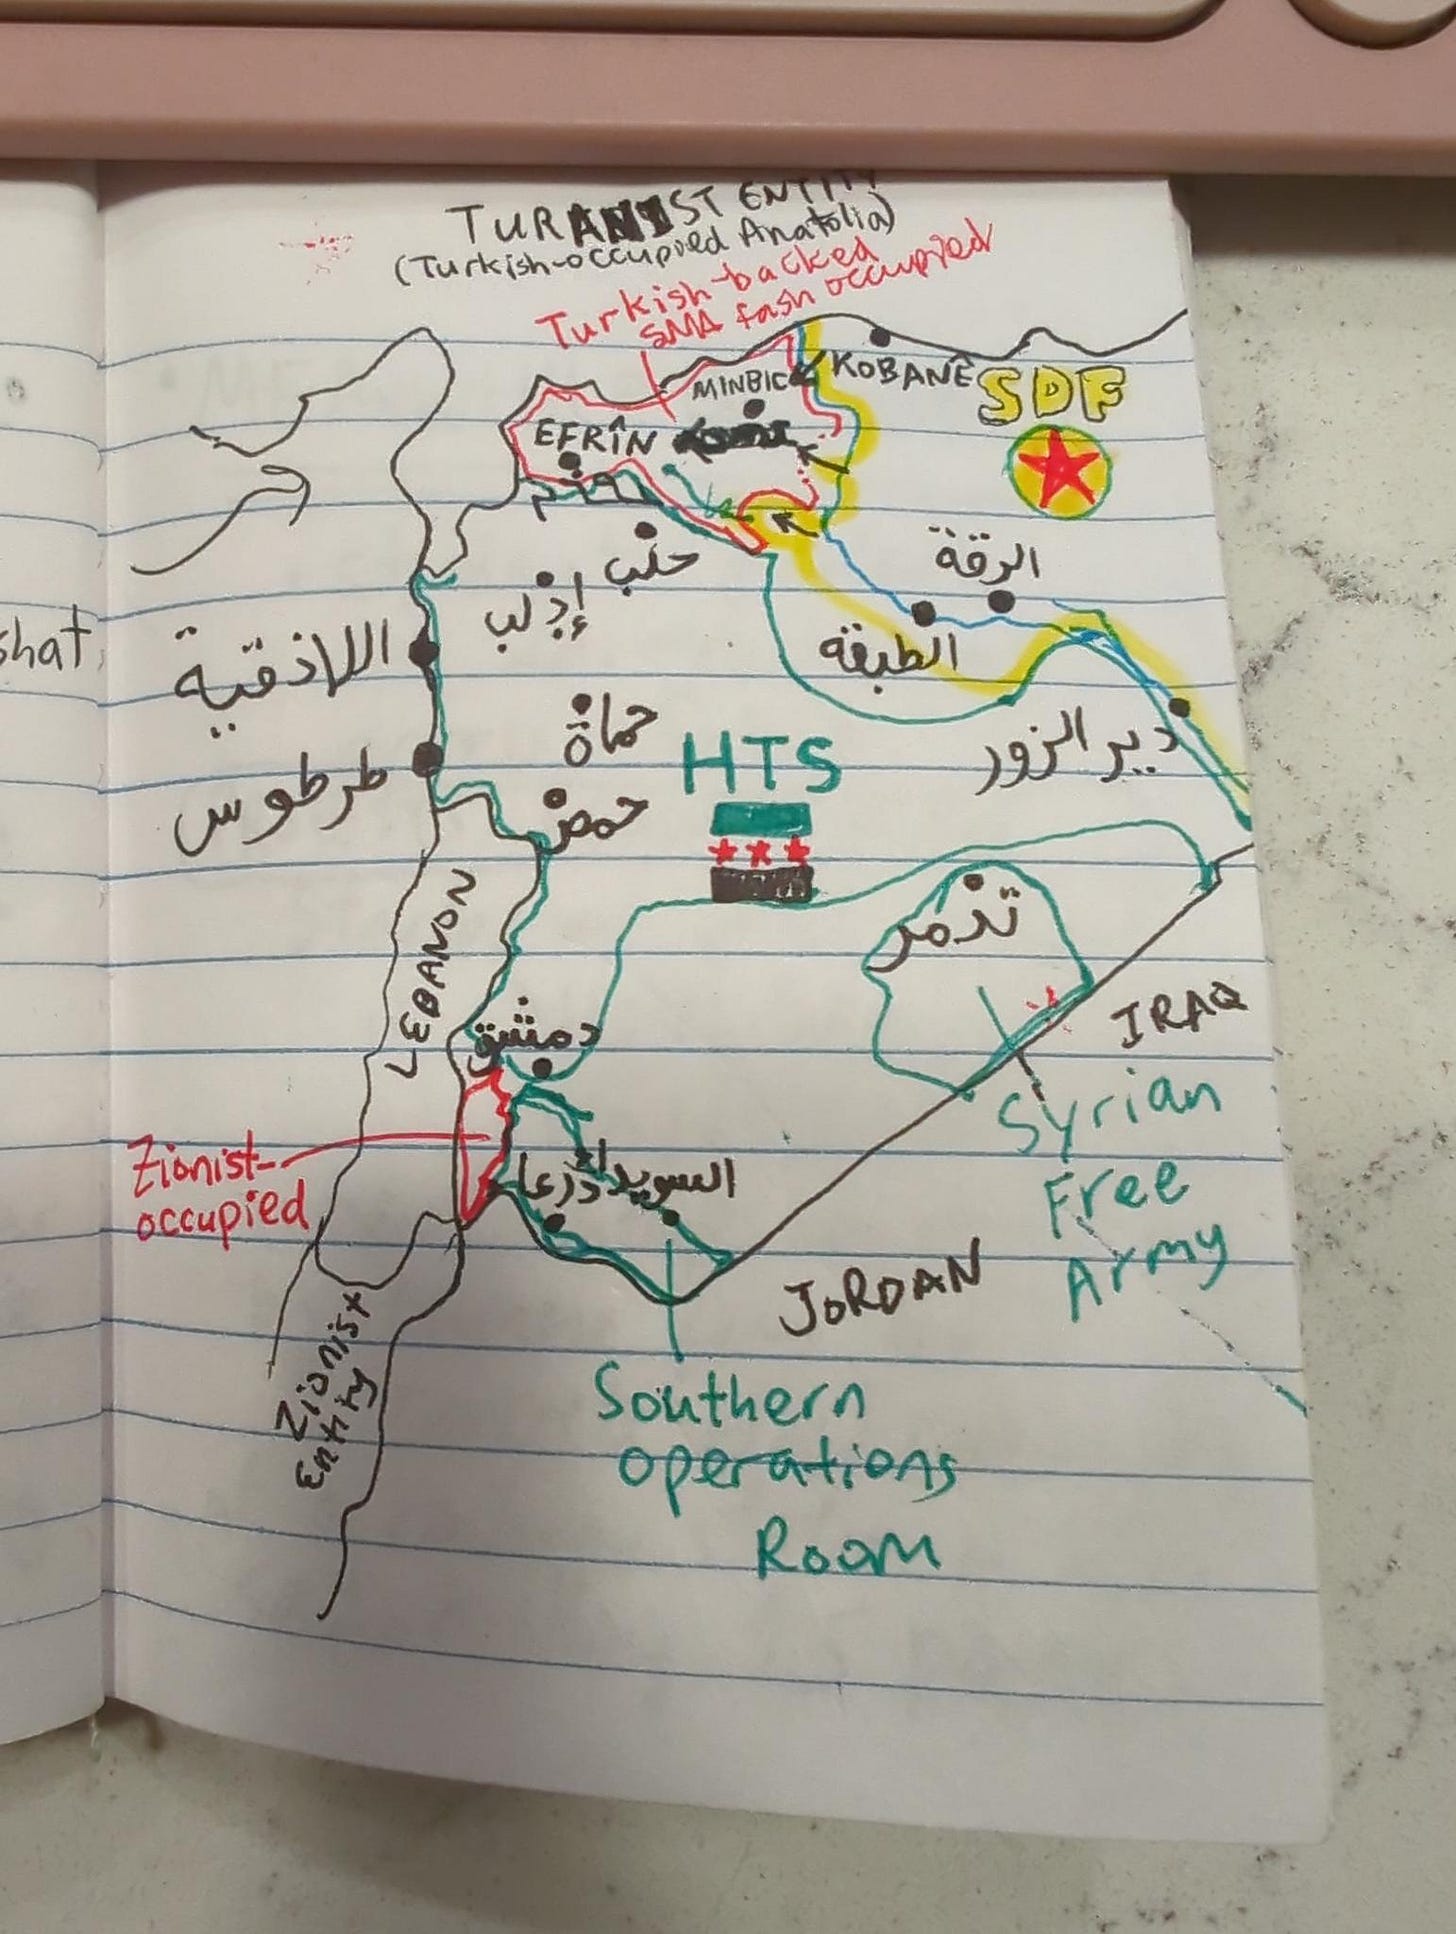 TURANIST ENTITY
(Turkish-occupied Anatolia)
Turkish-backed
SMA fash occupied
MINBIC
KOBANÊ
SDF
EFRÎN
حلب
الرقة
إدلب
shat
الطبقة
اللاذقية
حماة
دير الزور
HTS
طرطوس
حمص
LEBANON
تدمر
دمشق
IRAQ
Syrian
Free
Army
Zionist-
occupied
السويداء
درعا
JORDAN
Zionist
Entity
Southern
operations
Room